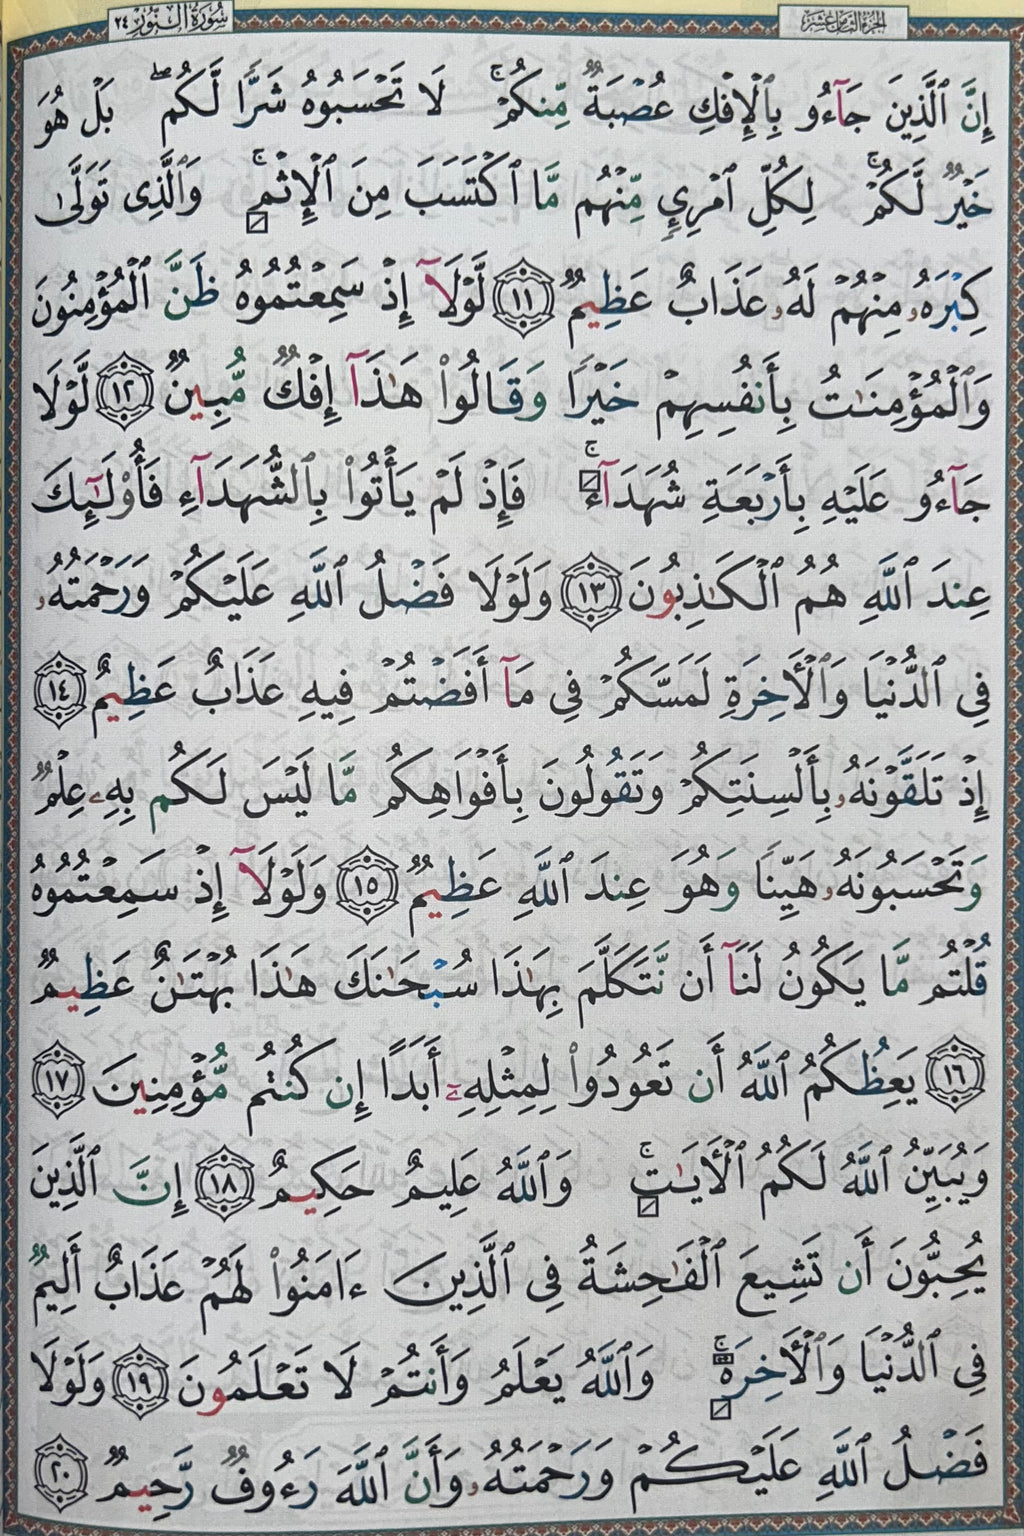 سُورَةُ النُّورِ ٢٤
الجُزْءُ الثَّامِنَ عَشَرَ
إِنَّ ٱلَّذِينَ جَآءُو بِٱلْإِفْكِ عُصْبَةٌ مِّنكُمْ ۚ لَا تَحْسَبُوهُ شَرًّا لَّكُم ۖ بَلْ هُوَ
خَيْرٌ لَّكُمْ ۚ لِكُلِّ ٱمْرِئٍ مِّنْهُم مَّا ٱكْتَسَبَ مِنَ ٱلْإِثْمِ ۚ وَٱلَّذِى تَوَلَّىٰ
كِبْرَهُۥ مِنْهُمْ لَهُۥ عَذَابٌ عَظِيمٌ ١١ لَّوْلَآ إِذْ سَمِعْتُمُوهُ ظَنَّ ٱلْمُؤْمِنُونَ
وَٱلْمُؤْمِنَـٰتُ بِأَنفُسِهِمْ خَيْرًا وَقَالُوا۟ هَـٰذَآ إِفْكٌ مُّبِينٌ ١٢ لَّوْلَا
جَآءُو عَلَيْهِ بِأَرْبَعَةِ شُهَدَآءَ ۚ فَإِذْ لَمْ يَأْتُوا۟ بِٱلشُّهَدَآءِ فَأُو۟لَـٰٓئِكَ
عِندَ ٱللَّهِ هُمُ ٱلْكَـٰذِبُونَ ١٣ وَلَوْلَا فَضْلُ ٱللَّهِ عَلَيْكُمْ وَرَحْمَتُهُۥ
فِى ٱلدُّنْيَا وَٱلْـَٔاخِرَةِ لَمَسَّكُمْ فِى مَآ أَفَضْتُمْ فِيهِ عَذَابٌ عَظِيمٌ ١٤
إِذْ تَلَقَّوْنَهُۥ بِأَلْسِنَتِكُمْ وَتَقُولُونَ بِأَفْوَاهِكُم مَّا لَيْسَ لَكُم بِهِۦ عِلْمٌ
وَتَحْسَبُونَهُۥ هَيِّنًا وَهُوَ عِندَ ٱللَّهِ عَظِيمٌ ١٥ وَلَوْلَآ إِذْ سَمِعْتُمُوهُ
قُلْتُم مَّا يَكُونُ لَنَآ أَن نَّتَكَلَّمَ بِهَـٰذَا سُبْحَـٰنَكَ هَـٰذَا بُهْتَـٰنٌ عَظِيمٌ
١٦ يَعِظُكُمُ ٱللَّهُ أَن تَعُودُوا۟ لِمِثْلِهِۦٓ أَبَدًا إِن كُنتُم مُّؤْمِنِينَ ١٧
وَيُبَيِّنُ ٱللَّهُ لَكُمُ ٱلْـَٔايَـٰتِ ۚ وَٱللَّهُ عَلِيمٌ حَكِيمٌ ١٨ إِنَّ ٱلَّذِينَ
يُحِبُّونَ أَن تَشِيعَ ٱلْفَـٰحِشَةُ فِى ٱلَّذِينَ ءَامَنُوا۟ لَهُمْ عَذَابٌ أَلِيمٌ
فِى ٱلدُّنْيَا وَٱلْـَٔاخِرَةِ ۚ وَٱللَّهُ يَعْلَمُ وَأَنتُمْ لَا تَعْلَمُونَ ١٩ وَلَوْلَا
فَضْلُ ٱللَّهِ عَلَيْكُمْ وَرَحْمَتُهُۥ وَأَنَّ ٱللَّهَ رَءُوفٌ رَّحِيمٌ ٢٠